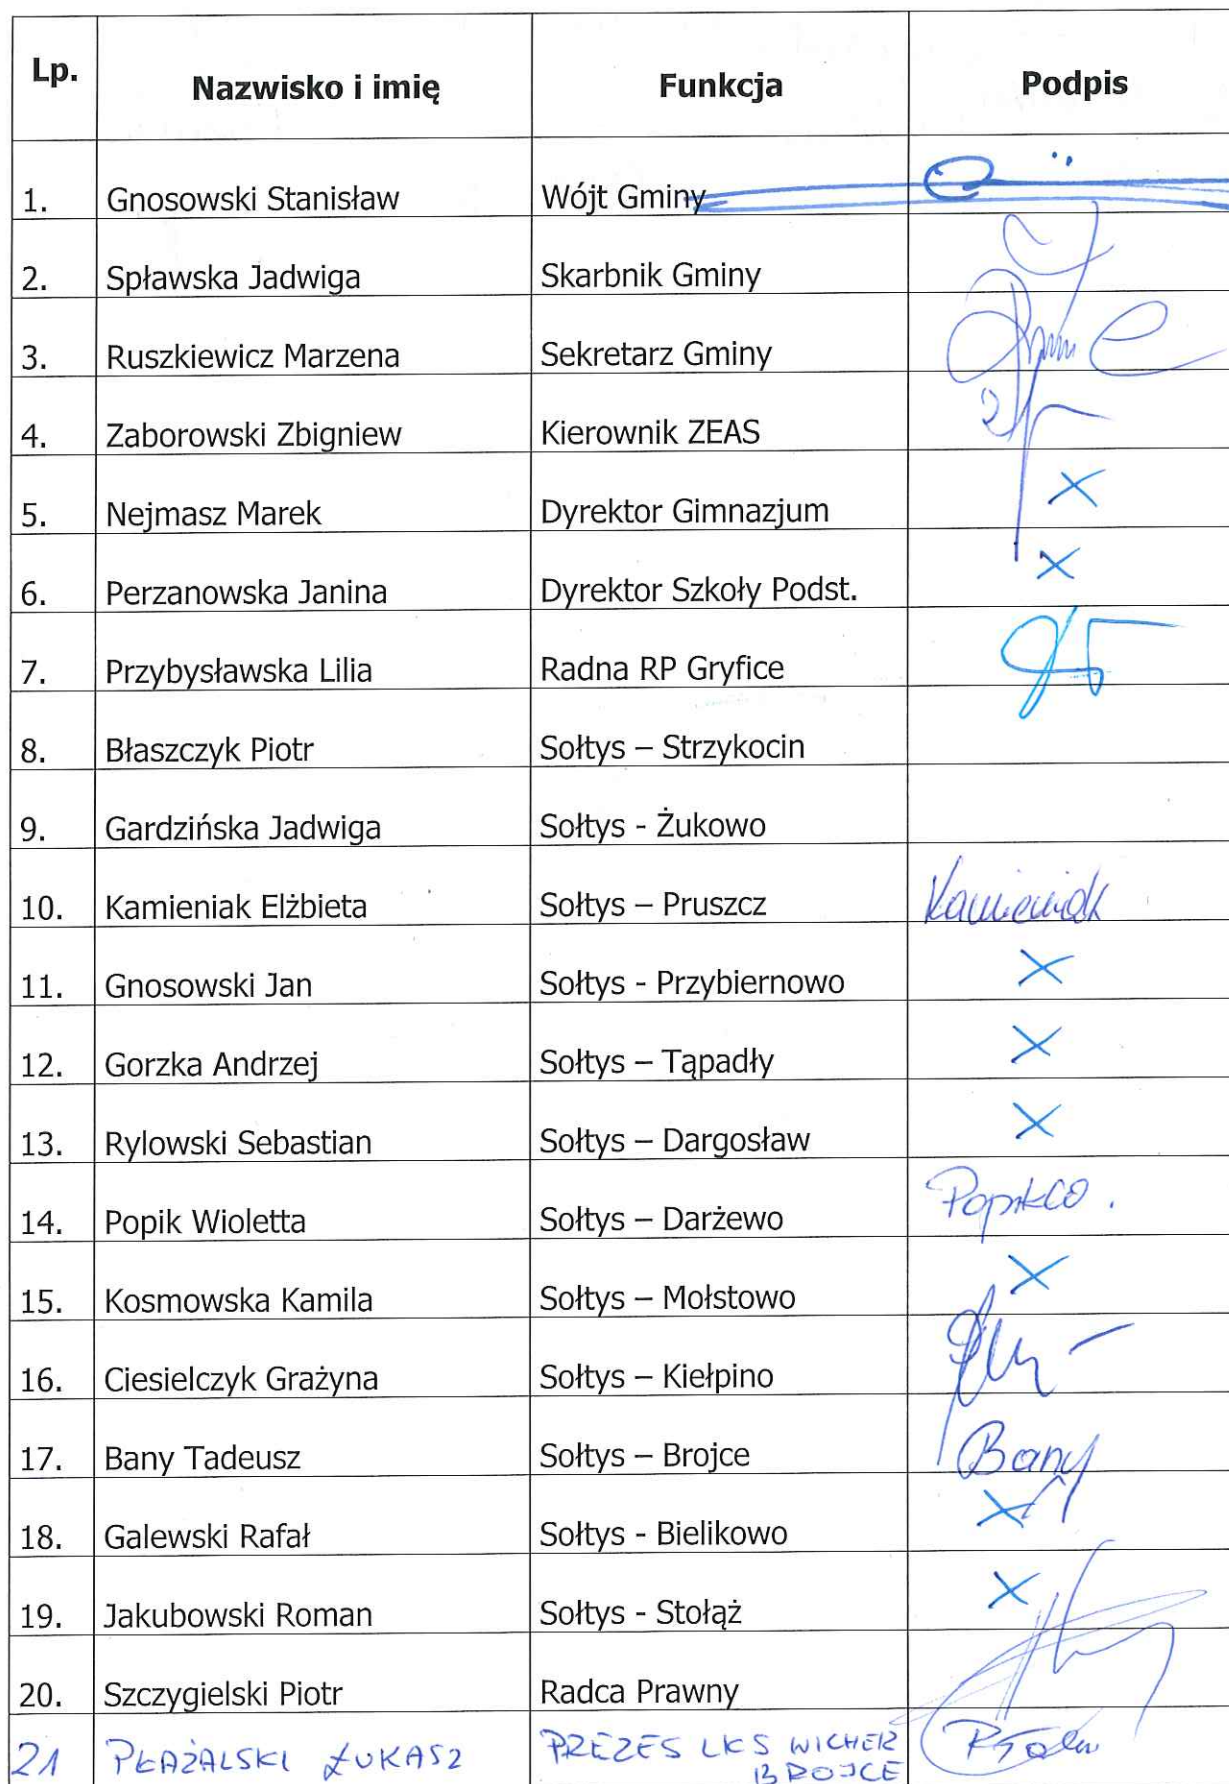 Lp. Nazwisko i imię Funkcja Podpis
1. Gnosowski Stanisław Wójt Gminy
2. Spławska Jadwiga Skarbnik Gminy
3. Ruszkiewicz Marzena Sekretarz Gminy
4. Zaborowski Zbigniew Kierownik ZEAS
5. Nejmasz Marek Dyrektor Gimnazjum X
6. Perzanowska Janina Dyrektor Szkoły Podst. X
7. Przybysławska Lilia Radna RP Gryfice
8. Błaszczyk Piotr Sołtys – Strzykocin
9. Gardzińska Jadwiga Sołtys - Żukowo
10. Kamieniak Elżbieta Sołtys – Pruszcz Kamieniak
11. Gnosowski Jan Sołtys - Przybiernowo X
12. Gorzka Andrzej Sołtys – Tąpadły X
13. Rylowski Sebastian Sołtys – Dargosław X
14. Popik Wioletta Sołtys – Darżewo
15. Kosmowska Kamila Sołtys – Mołstowo X
16. Ciesielczyk Grażyna Sołtys – Kiełpino
17. Bany Tadeusz Sołtys – Brojce Bany
18. Galewski Rafał Sołtys - Bielikowo X
19. Jakubowski Roman Sołtys - Stołąż X
20. Szczygielski Piotr Radca Prawny
21 PŁAŻALSKI ŁUKASZ PREZES LKS WICHER
BROJCE